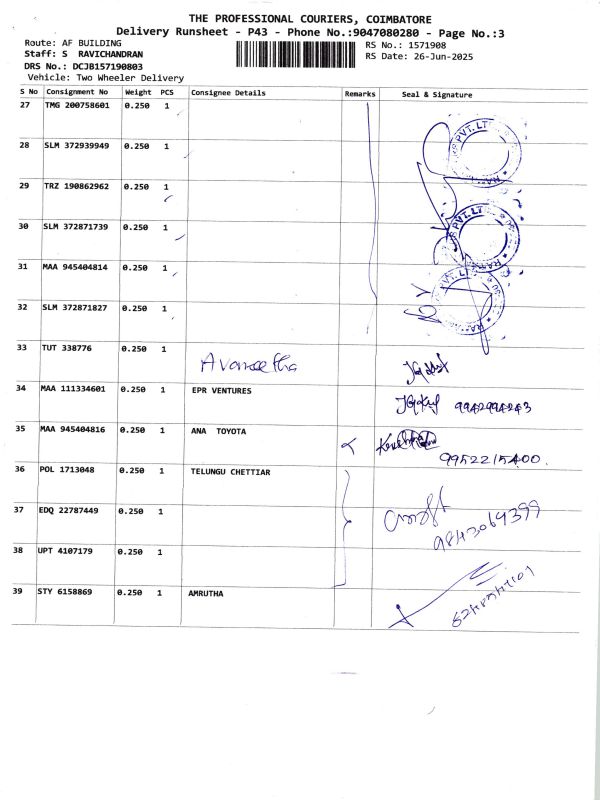 THE PROFESSIONAL COURIERS, COIMBATORE
Delivery Runsheet - P43 - Phone No.:9047080280 - Page No.:3
Route: AF BUILDING
RS No.: 1571908
Staff: S RAVICHANDRAN
RS Date: 26-Jun-2025
DRS No.: DCJB157190803
Vehicle: Two Wheeler Delivery
S No Consignment No Weight PCS Consignee Details Remarks Seal & Signature
27 TMG 200758601 0.250 1
28 SLM 372939949 0.250 1
29 TRZ 190862962 0.250 1
30 SLM 372871739 0.250 1
31 MAA 945404814 0.250 1
32 SLM 372871827 0.250 1
33 TUT 338776 0.250 1 Avaneetha
34 MAA 111334601 0.250 1 EPR VENTURES
9942994243
35 MAA 945404816 0.250 1 ANA TOYOTA
9952215400.
36 POL 1713048 0.250 1 TELUNGU CHETTIAR
37 EDQ 22787449 0.250 1
9843064399
38 UPT 4107179 0.250 1
39 STY 6158869 0.250 1 AMRUTHA